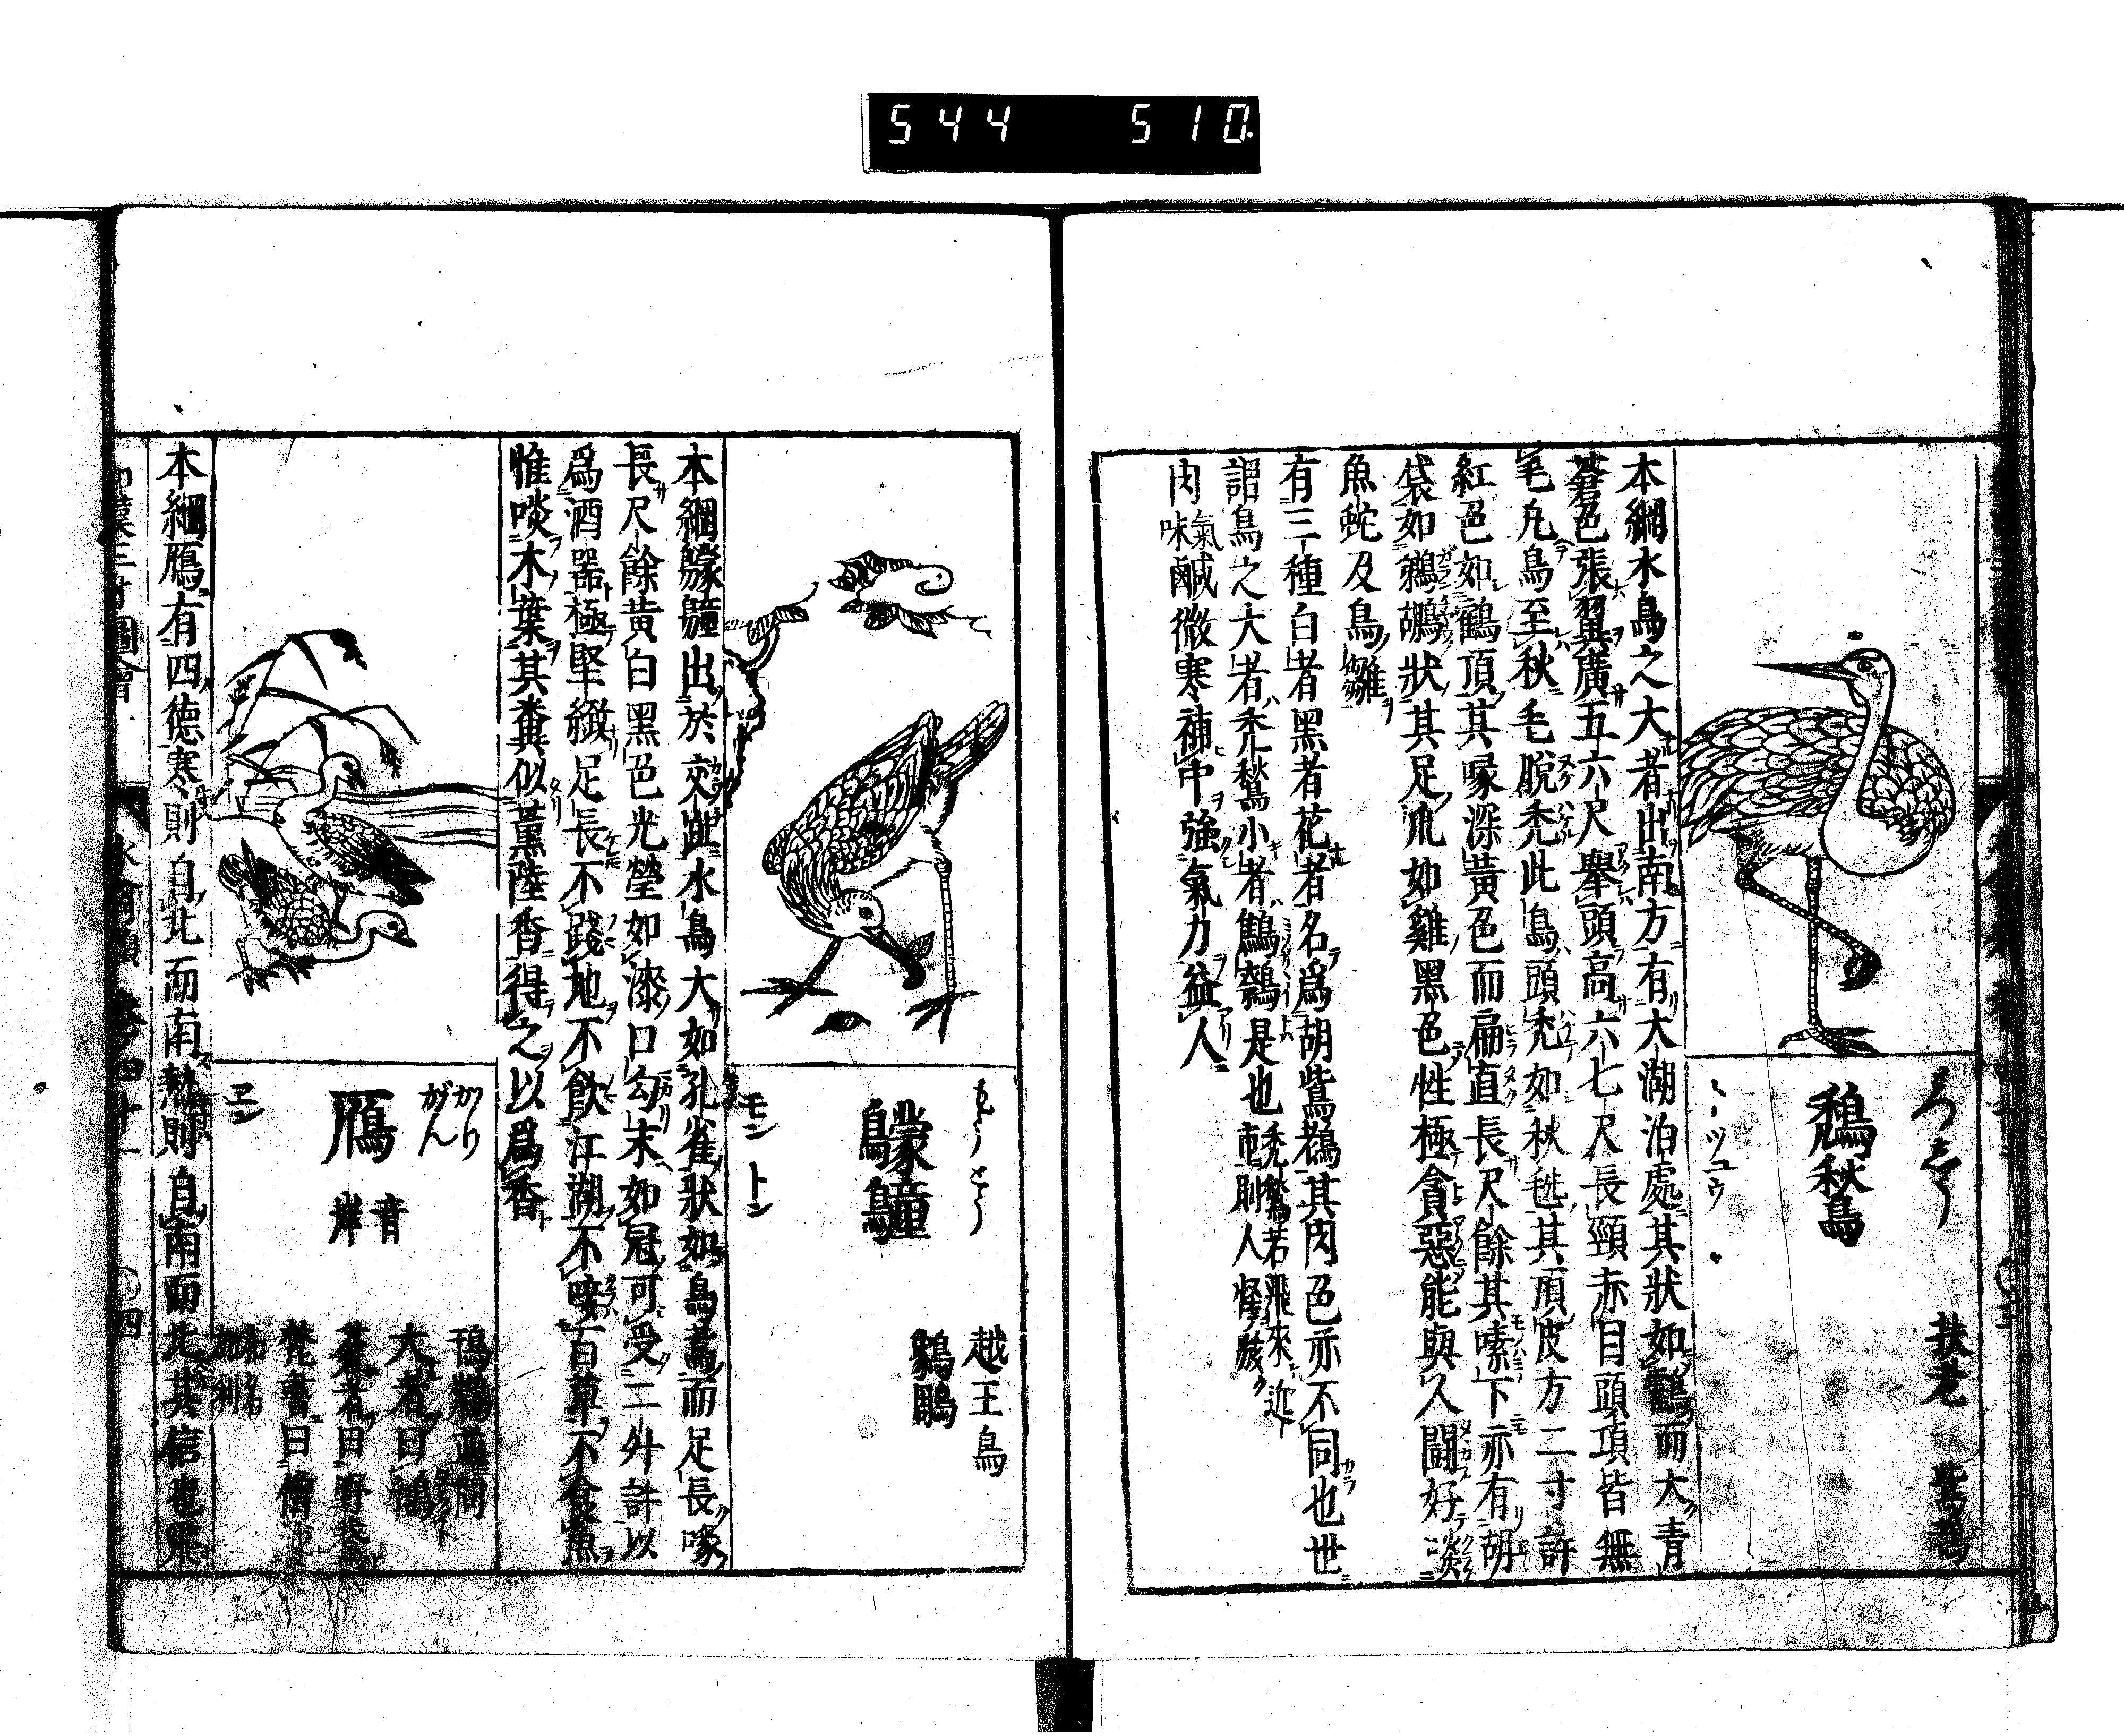 544 510.
扶老
鵚鶖
本綱水鳥之大者出南方有大湖泊處其狀如鶴而大青
蒼色張翼廣五六尺舉頭高六七尺長頸赤目頭項皆無
毛凡鳥至秋毛脫禿此鳥頭禿如秋毨其頂皮方二寸許
紅色如鶴頂其喙深黃色而扁直長尺餘其嗉下亦有胡
袋如鵜鶘狀其足爪如雞黑色性極貪惡能與人鬪好啖
魚蛇及鳥雛
有三種白者黑者花者名爲胡鵞鶴其肉色亦不同也世
謂鳥之大者禿鶖小者鷦鷯是也禿鶖若飛來近市則人怪駭
肉氣味鹹微寒補中強氣力益人
もんどう
鸏𪆻
モントン
越王鳥
鶴鵰
本綱鸏𪆻出於交趾水鳥大如孔雀狀如鳥蔿而足長喙
長尺餘黃白黑色光瑩如漆口勾末如冠可受二升許以
爲酒器極堅緻足長不踐地不飲江湖不唼百草不食魚
惟啖木葉其糞似薰陸香得之以爲香
かり
がん
鴈
音岸
ヱン
大者曰鴻
梵書曰僧
本綱鴈有四德寒則自北而南熱則自南而北其信也
三才圖會
四十一
四